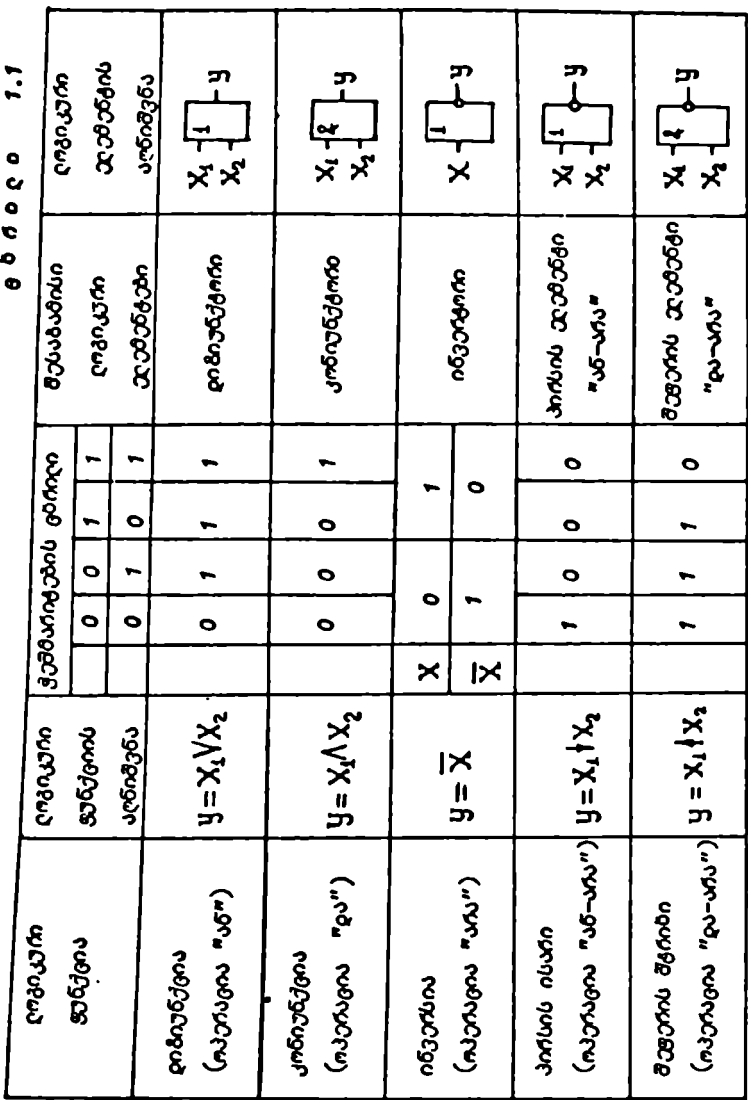 ცხრილი 1.1
ლოგიკური
ფუნქცია
ლოგიკური
ფუნქციის
აღნიშვნა
ჭეშმარიტების ცხრილი
0 0 1 1
0 1 0 1
შესაბამისი
ლოგიკური
ელემენტები
ლოგიკური
ელემენტის
აღნიშვნა
დიზიუნქცია
(ოპერაცია "ან")
y = X₁VX₂
0 1 1 1
დიზიუნქტორი
X₁
X₂
1
y
კონიუნქცია
(ოპერაცია "და")
y = X₁ΛX₂
0 0 0 1
კონიუნქტორი
X₁
X₂
&
y
ინვერსია
(ოპერაცია "არა")
y = X̅
X 0 1
X̅ 1 0
ინვერტორი
X
1
y
პირსის ისარი
(ოპერაცია "ან-არა")
y = X₁ ↓ X₂
1 0 0 0
პირსის ელემენტი
"ან-არა"
X₁
X₂
1
y
შეფერის შტრიხი
(ოპერაცია "და-არა")
y = X₁ ∤ X₂
1 1 1 0
შეფერის ელემენტი
"და-არა"
X₁
X₂
&
y